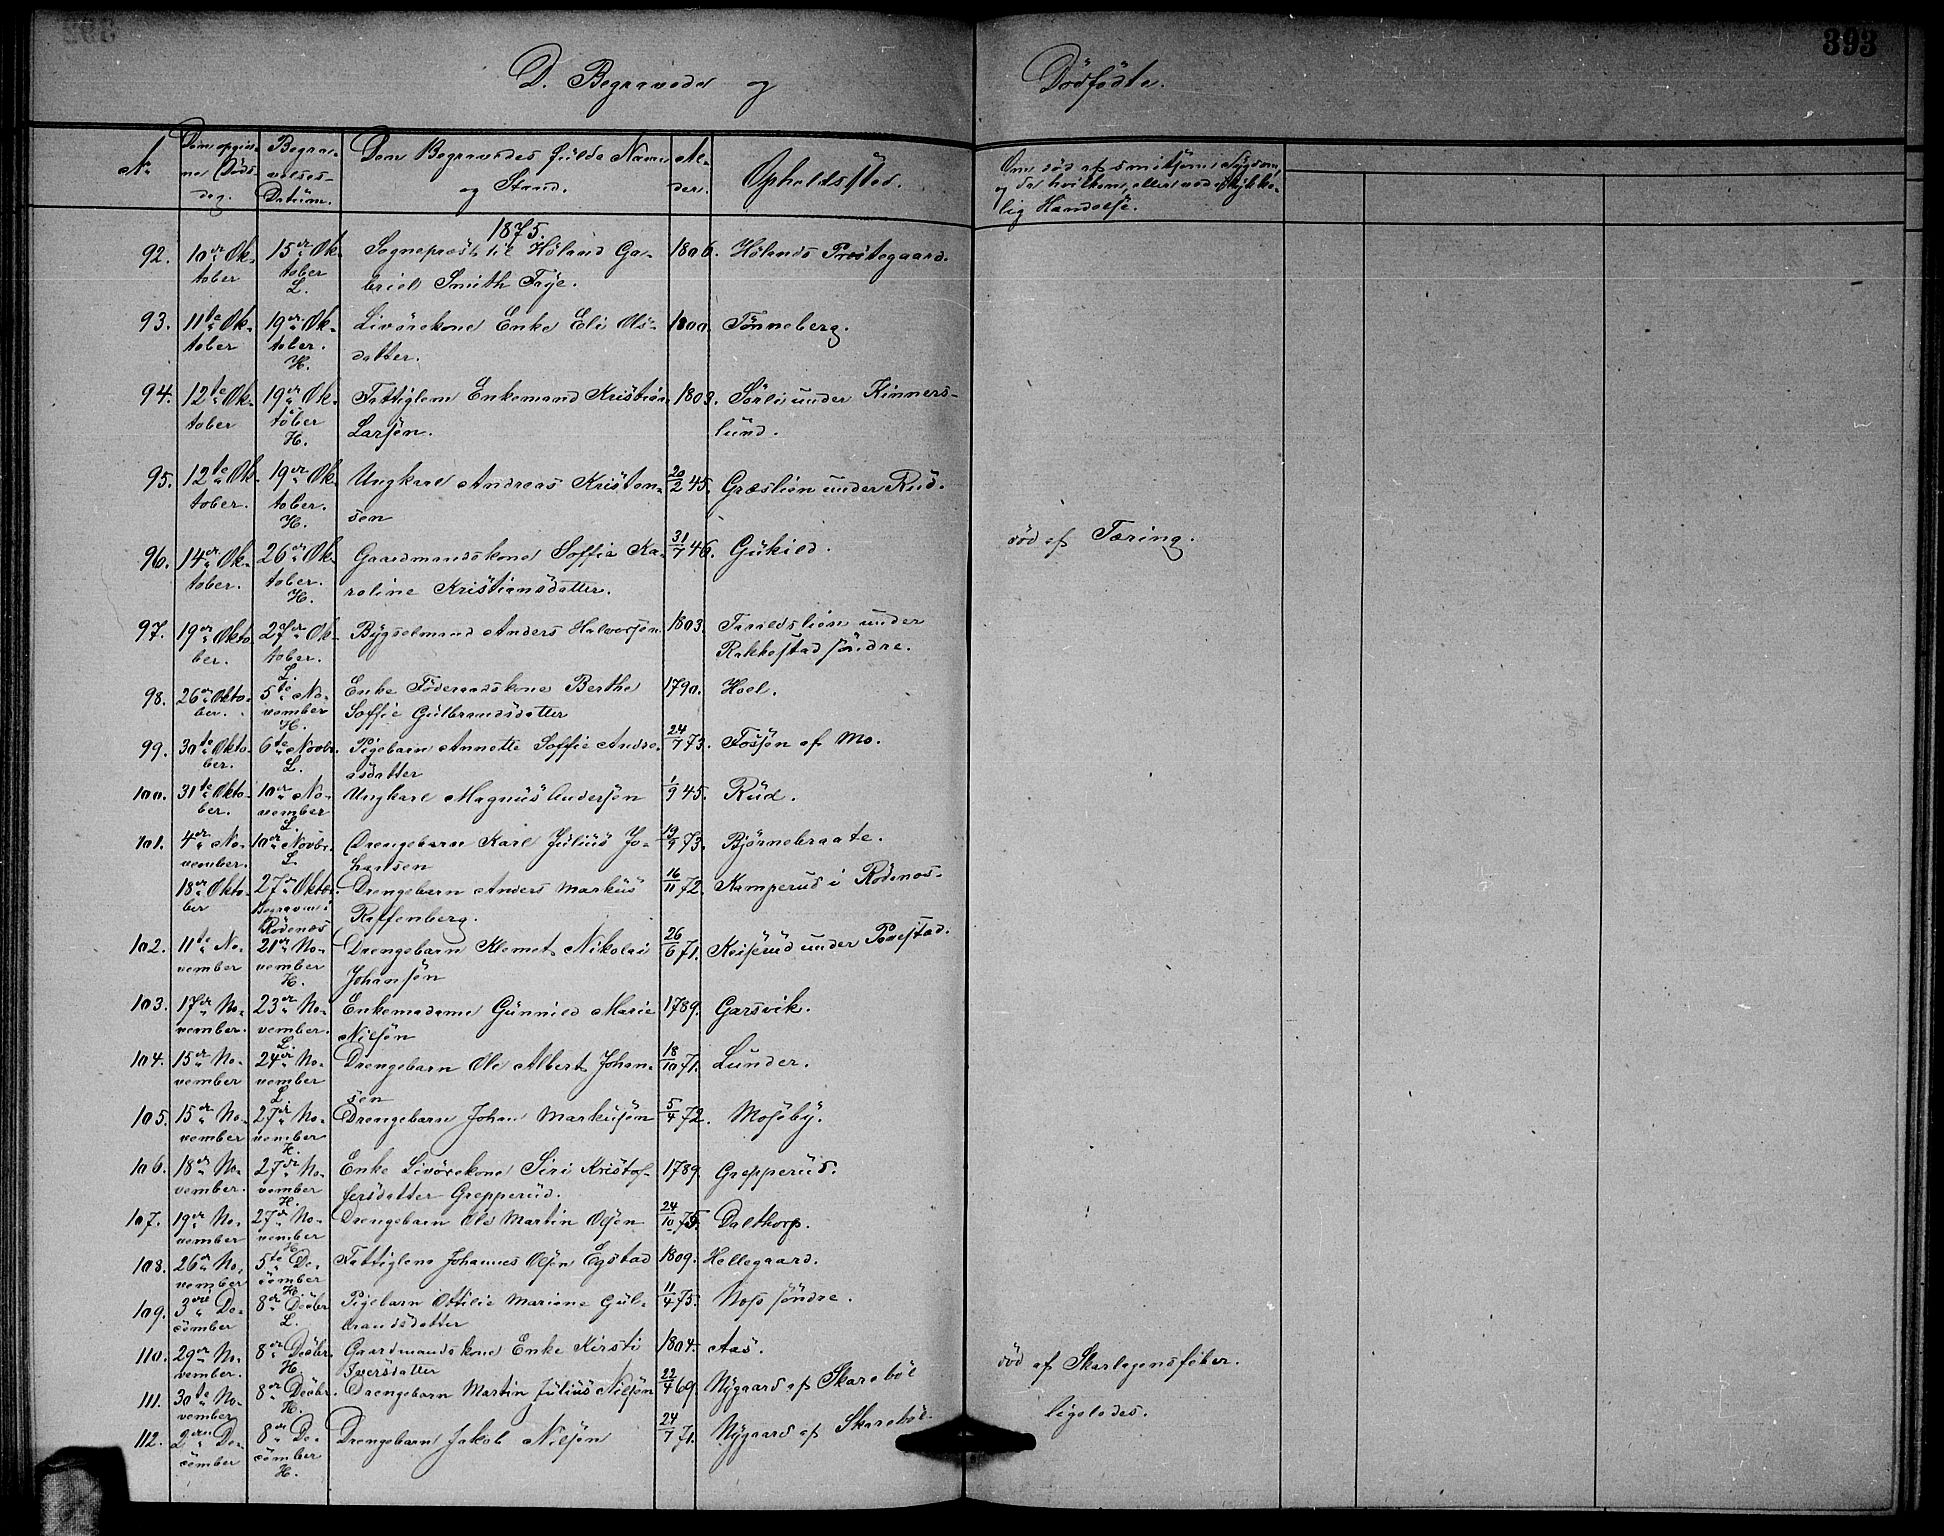 393
D. Begravede og Dödfödte.
No
Den opgivne Dödsdag.
Begravelses-Datum.
Den Begravedes fulde Navn og Stand.
Alder.
Opholdssted.
Om död af smitsom Sygdom, og da hvilken, eller ved ulykkelig Hændelse.
1875.
92. 10de Oktober 15de Oktober L. Sognepræst til Höland Gabriel Smith Faye. 1806. Hölands Præstegaard.
93. 11te Oktober 19de Oktober. H. Livörekone Enke Eli Olsdatter. 1800. Tönneberg.
94. 12te Oktober 19de Oktober H. Fattiglem Enkemand Kristian Larsen. 1803. Sörli under Kinnerslund.
95. 12te Oktober. 19de Oktober. H. Ungkarl Andreas Kristensen 20/2 45. Græslien under Rud.
96. 14de Oktober. 26de Oktober. H. Gaardmandskone Soffie Karoline Kristiansdatter. 31/7 46. Gukild. död af Tæring.
97. 19de Oktober. 27de Oktober. L. Bygselmand Anders Halvorsen 1803. Taraldslien under Rakkestad söndre.
98. 26de Oktober. 5te November H. Enke Föderaadskone Berthe Soffie Gulbrandsdatter 1790. Hoel.
99. 30te Oktober. 6te Novbr. L. Pigebarn Annette Soffie Andreasdatter 24/7 73. Fossen af Mo.
100. 31te Oktober. 10de November L. Ungkarl Magnus Andersen 1/9 45. Rud.
101. 4de November. 10de Novbr. L. Drengebarn Karl Julius Johansen 19/9 73. Björnebraate.
18de Oktober 27de Oktbr. Begraven i Rödenæs Drengebarn Anders Markus Raffenberg. 16/11 72. Kamperud i Rödenæs.
102. 11te November 21de November H. Drengebarn Klemet Nikolai Johansen 26/6 71. Kriserud under
103. 17de November. 23de November. L. Enkemadame Gunnild Marie Nilsen 1789. Garsvik.
104. 15de November 24de November L. Drengebarn Ole Albert Johansen 18/10 71. Lunder.
105. 15de November 27de November H. Drengebarn Johan Markusen 5/4 72. Moseby.
106. 18de November. 27de November H. Enke Livörekone Siri Kristoffersdatter Grepperud. 1789. Grepperud.
107. 19de November 27de November H. Drengebarn Ole Martin Olsen 24/10 75. Daltorp.
108. 26de November 5te December H. Fattiglem Johannes Olsen Egstad 1809. Hellegaard.
109. 3die December 8de Decbr. L. Pigebarn Ottilie Mariane Gulbrandsdatter 11/4 75. Næs söndre.
110. 29de November. 8de Decbr. H. Gaardmandskone Enke Kirsti Iversdatter 1804. Aas.
111. 30te November 8de Decbr. H. Drengebarn Martin Julius Nilsen 22/4 69. Nygaard af Skareböl död af Skarlagensfeber.
112. 2den December 8de December H. Drengebarn Jakob Nilsen 24/7 71. Nygaard af Skareböl. ligeledes.